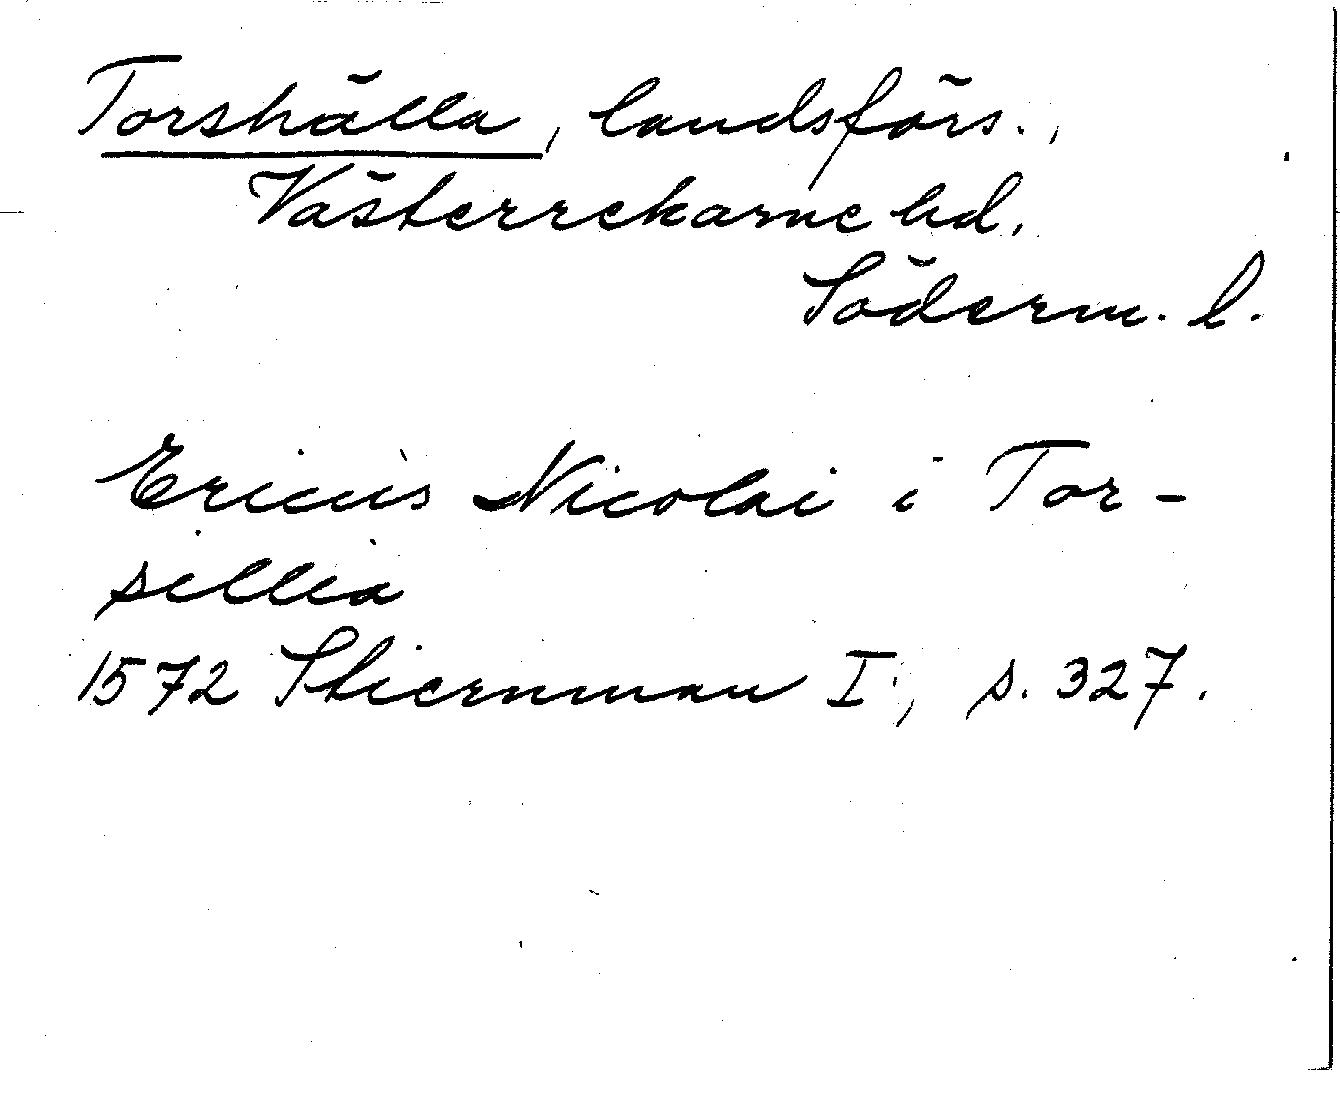 Torshälla, landsförs.,
Västerrekarne hd.
Söderm. l.
Ericus Nicolai i Tor-
sillia
1572 Stiernman I, s. 327.